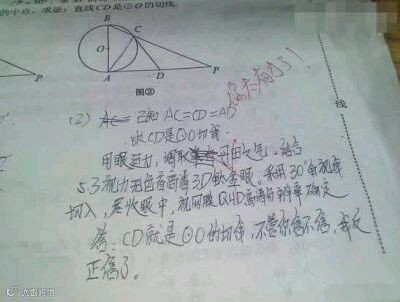 的中点，求证：直线CD是⊙O的切线.
B
C
O
P
A
D
P
图②
你太有才了！
线
(2) 已知 AC=CD=AD
求CD是⊙O切线
用眼运力，调取丹田之气，结合
5.3视力和包音高清3D钛金眼。采用30°角视线
切入，聚收眼中，视网膜QHD高清的分辨率确定
答：CD就是⊙O的切线，不管你信不信，我反
正信了。